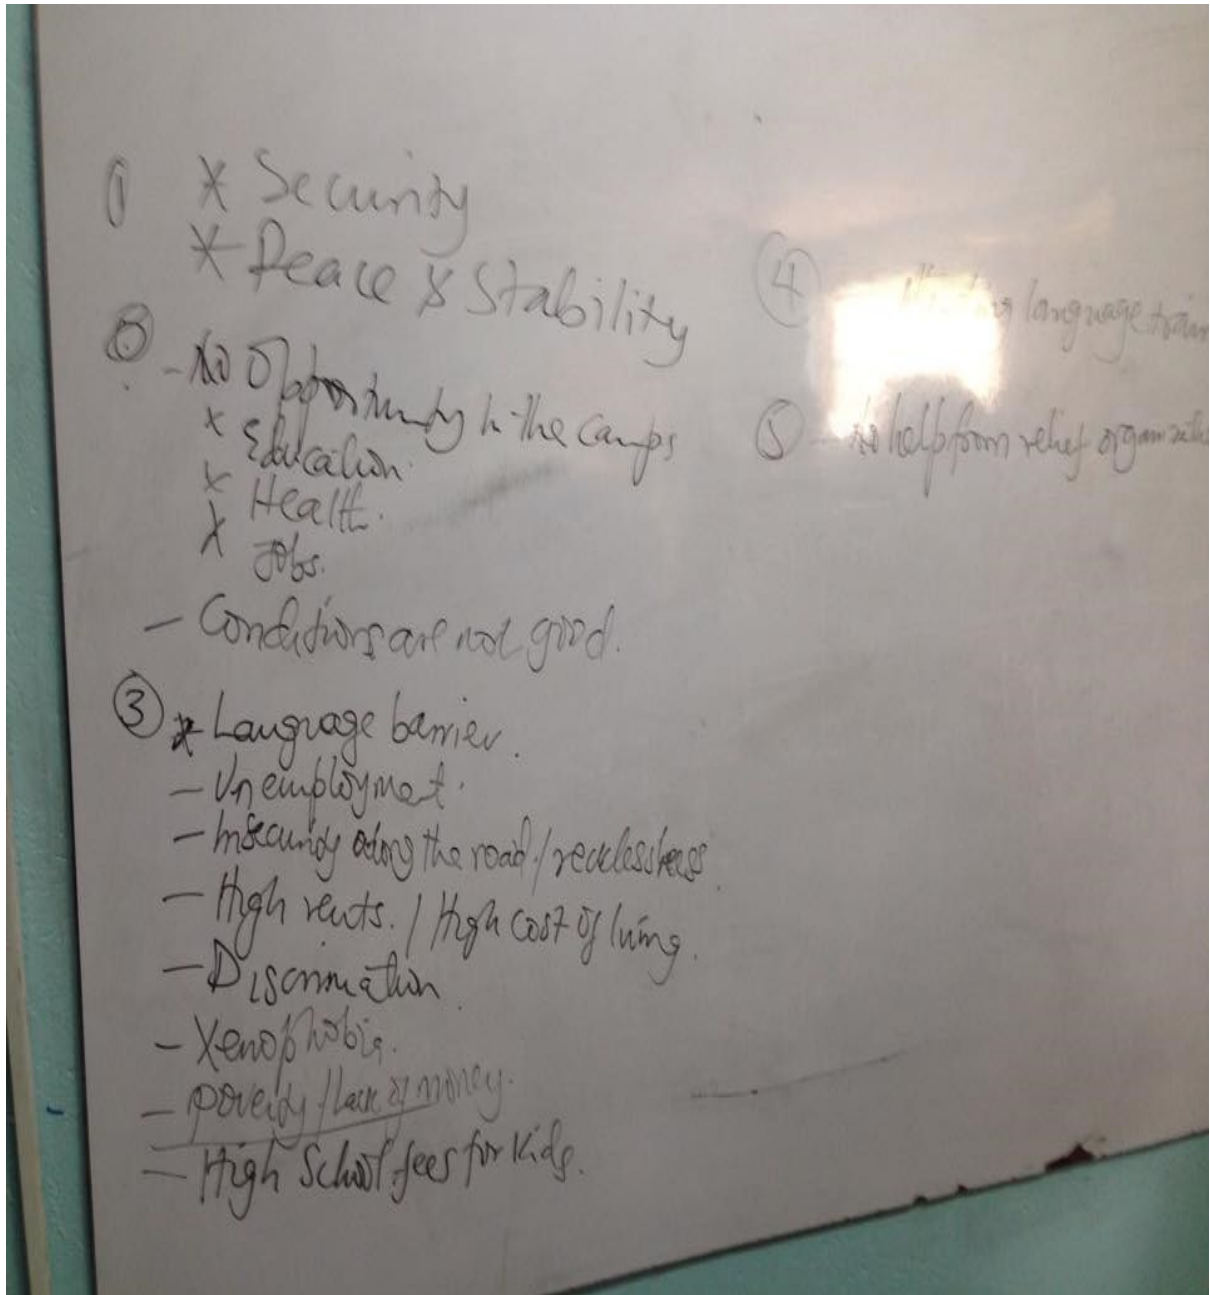 ① * Security
* Peace & Stability
② - No Opportunity in the Camps
* Education.
* Health.
* Jobs.
- Conditions are not good.
③ * Language barrier.
- Unemployment.
- Insecurity along the road / recklessness.
- High rents. / High cost of living.
- Discrimination
- Xenophobia.
- Poverty / lack of money.
- High School fees for kids.
④ language
⑤ - No help from relief